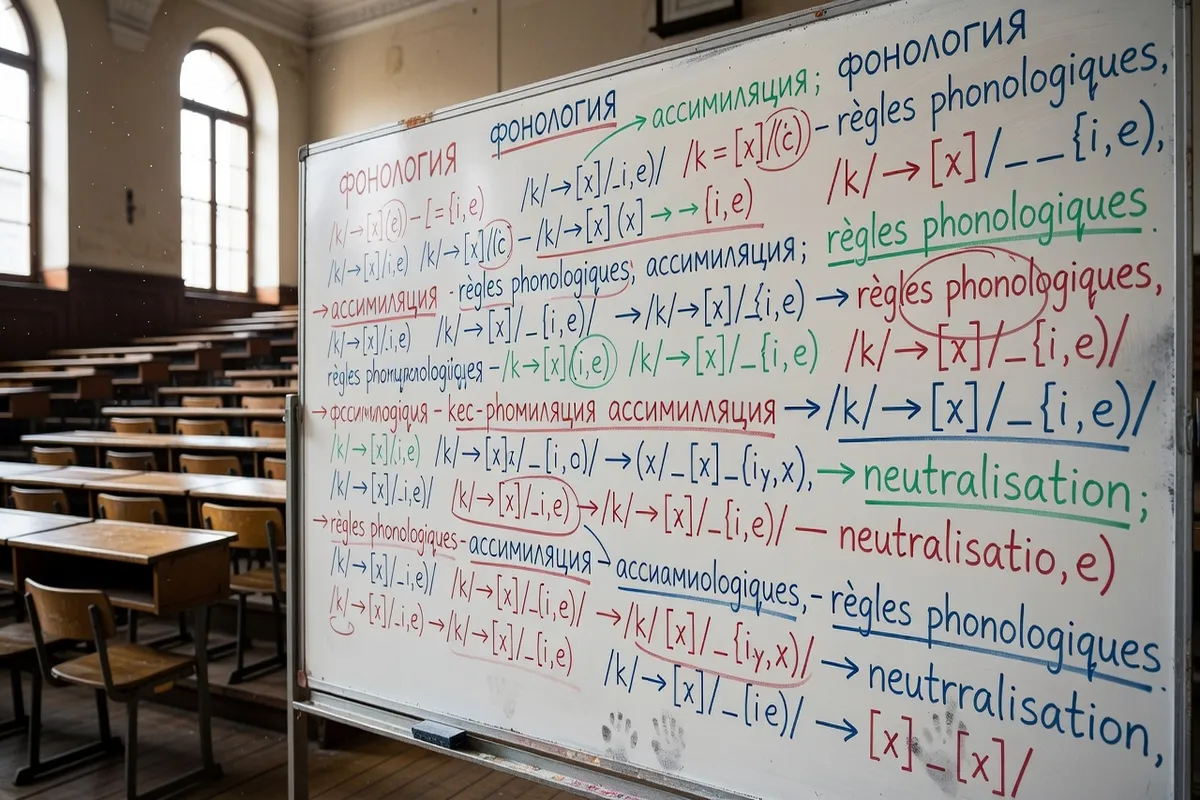 ФОНОЛОГИЯ
ФОНОЛОГИЯ → ассимиляция; ФОНОЛОГИЯ
/k/→[x]/_i,e)/ /k = [x]/(ċ) – règles phonologiques,
/k/→[x](e) – [= {i,e)
/k/→[x]/i,e) /k/→[x]/(ċ – /k/→[x](x) →→ {i,e) /k/→[x]/__{i,e),
→ ассимиляция - règles phonologiques, ассимиляция; règles phonologiques.
/k/→[x]/.i,e) /k/→[x]/_{i,e)/ →/k/→[x]/_{i,e) → règles phonologiques,
/k→[x](i,e) /k/→[x]/_{i,e) /k/→[x]/_{i,e)/
→ – кес-рhомиляция ассимилляция →/k/→[x]/_{i,e)/
/k/→[x]/.i,e) /k/→[x]x/_[i,o)/ →(x/_[x]_(iy,x), → neutralisation;
/k/→[x]/_i,e)/ /k/→[x]/_i,e) →/k/→[x]/_{i,e)/ — neutralisatio,e)
→ règles phonologiques - ассимиляция - ассиамиologiques,- règles phonologiques.
/k/→[x]/_i,e)/ /k/→[x]/_[i,e)/ →/k/[x]/_{iy,x)/ → neutrralisation,
/k/→[x]/_i,e) →/k/→[x]/_[i,e) /k/→[x]/_[ie)/ → [x]_[x]/